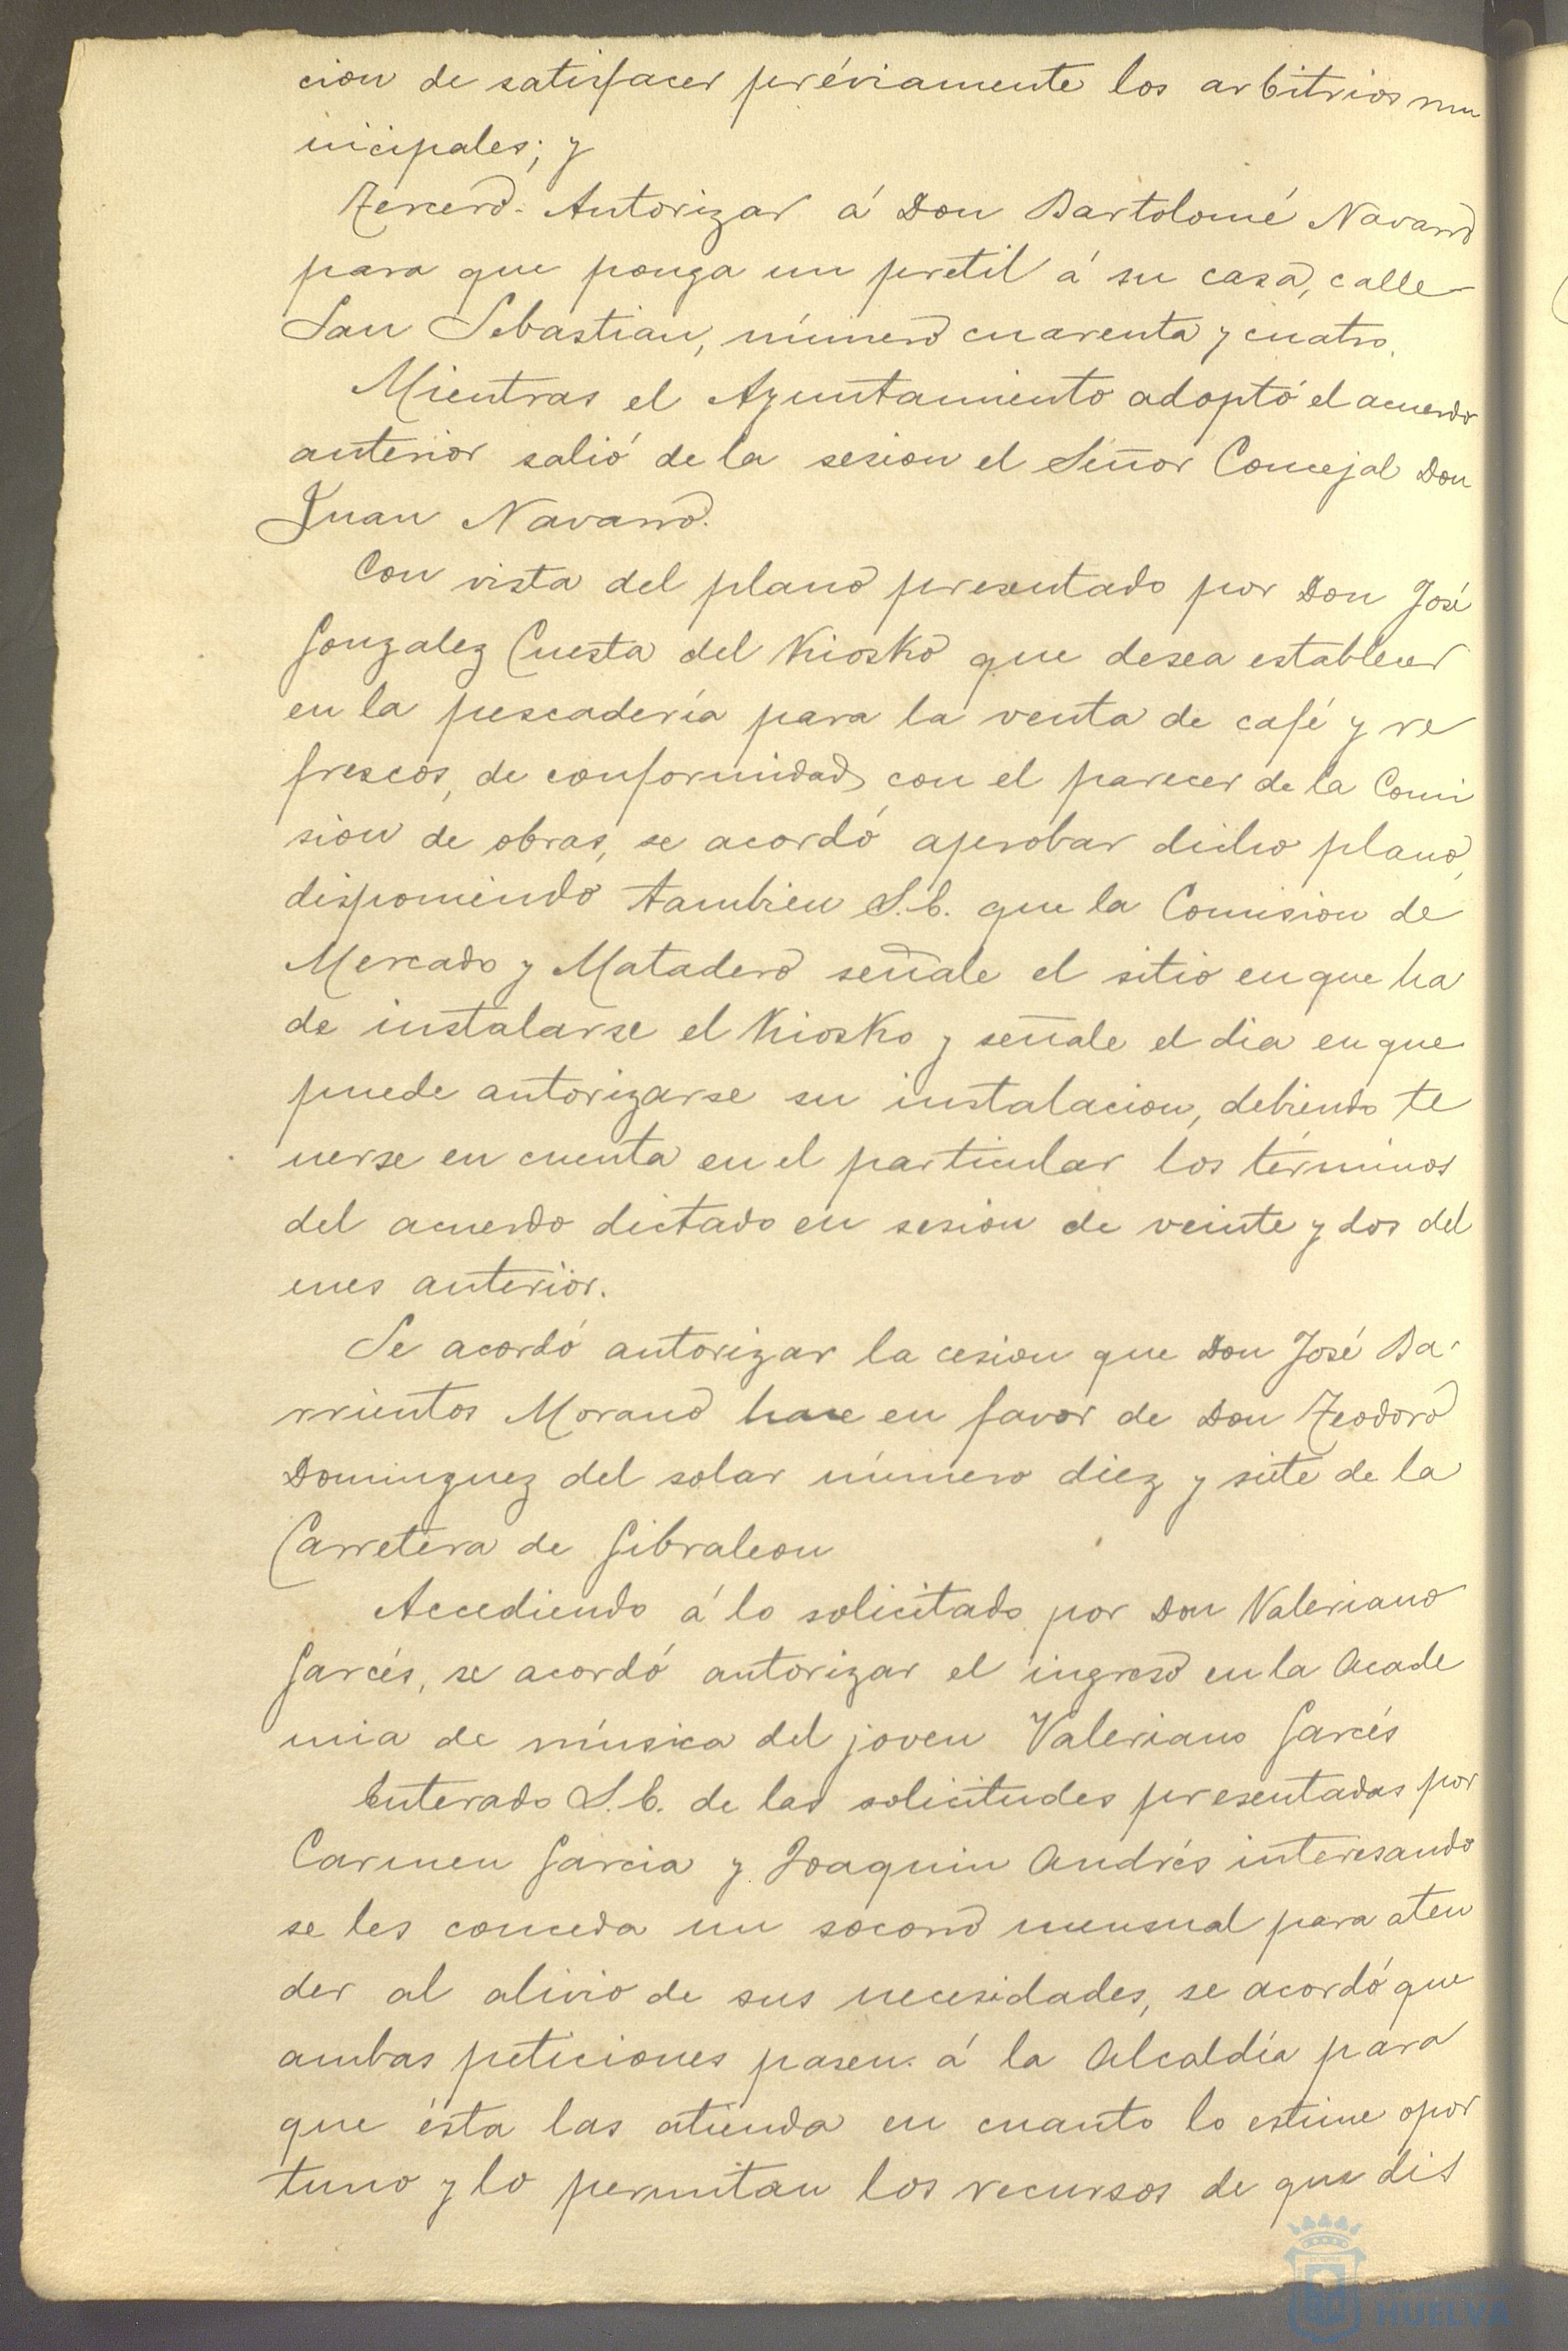 cion de satisfacer préviamente los arbitrios mu
nicipales; y
Tercero. Autorizar á Don Bartolomé Navarro
para que ponga un pretil á su casa, calle
San Sebastian, número cuarenta y cuatro.
Mientras el Ayuntamiento adoptó el acuerdo
anterior salió de la sesion el Señor Concejal Don
Juan Navarro.
Con vista del plano presentado por Don José
Gonzalez Cuesta del Kiosko que desea establecer
en la pescadería para la venta de café y re
frescos, de conformidad con el parecer de la Comi
sion de obras, se acordó aprobar dicho plano,
disponiendo tambien S.E. que la Comision de
Mercado y Matadero señale el sitio en que ha
de instalarse el Kiosko y señale el dia en que
puede autorizarse su instalacion, debiendo te
nerse en cuenta en el particular los términos
del acuerdo dictado en sesion de veinte y dos del
mes anterior.
Se acordó autorizar la cesion que Don José Ba-
rrientos Morano hace en favor de Don Teodoro
Dominguez del solar número diez y siete de la
Carretera de Gibraleon
Accediendo á lo solicitado por Don Valeriano
Garcés, se acordó autorizar el ingreso en la Acade
mia de música del joven Valeriano Garcés
Enterado S.E. de las solicitudes presentadas por
Carmen Garcia y Joaquin Andrés interesando
se les conceda un socorro mensual para aten
der al alivio de sus necesidades, se acordó que
ambas peticiones pasen á la Alcaldía para
que ésta las atienda en cuanto lo estime opor
tuno y lo permitan los recursos de que dis
HUELVA